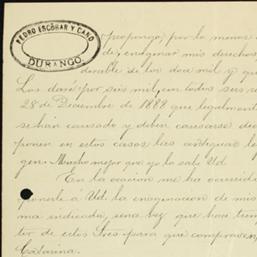 PEDRO ESCÓBAR Y CANO
DURANGO.
propongo, por lo menos
de enagenar mis derechos
derable de los dos mil y
Los daré por seis mil, con todos sus
28 de Diciembre de 1888 que legalmente
se han causado y deben causarse
ponen en estos casos los antiguos
gen. Mucho mejor que yo lo sabe Ud.
En la ocasion me ha ocurrido
ponerle á Ud. la enagenacion de mis
ma indicada, una vez que han
tor de estos Sres para que compraran
Catarina.